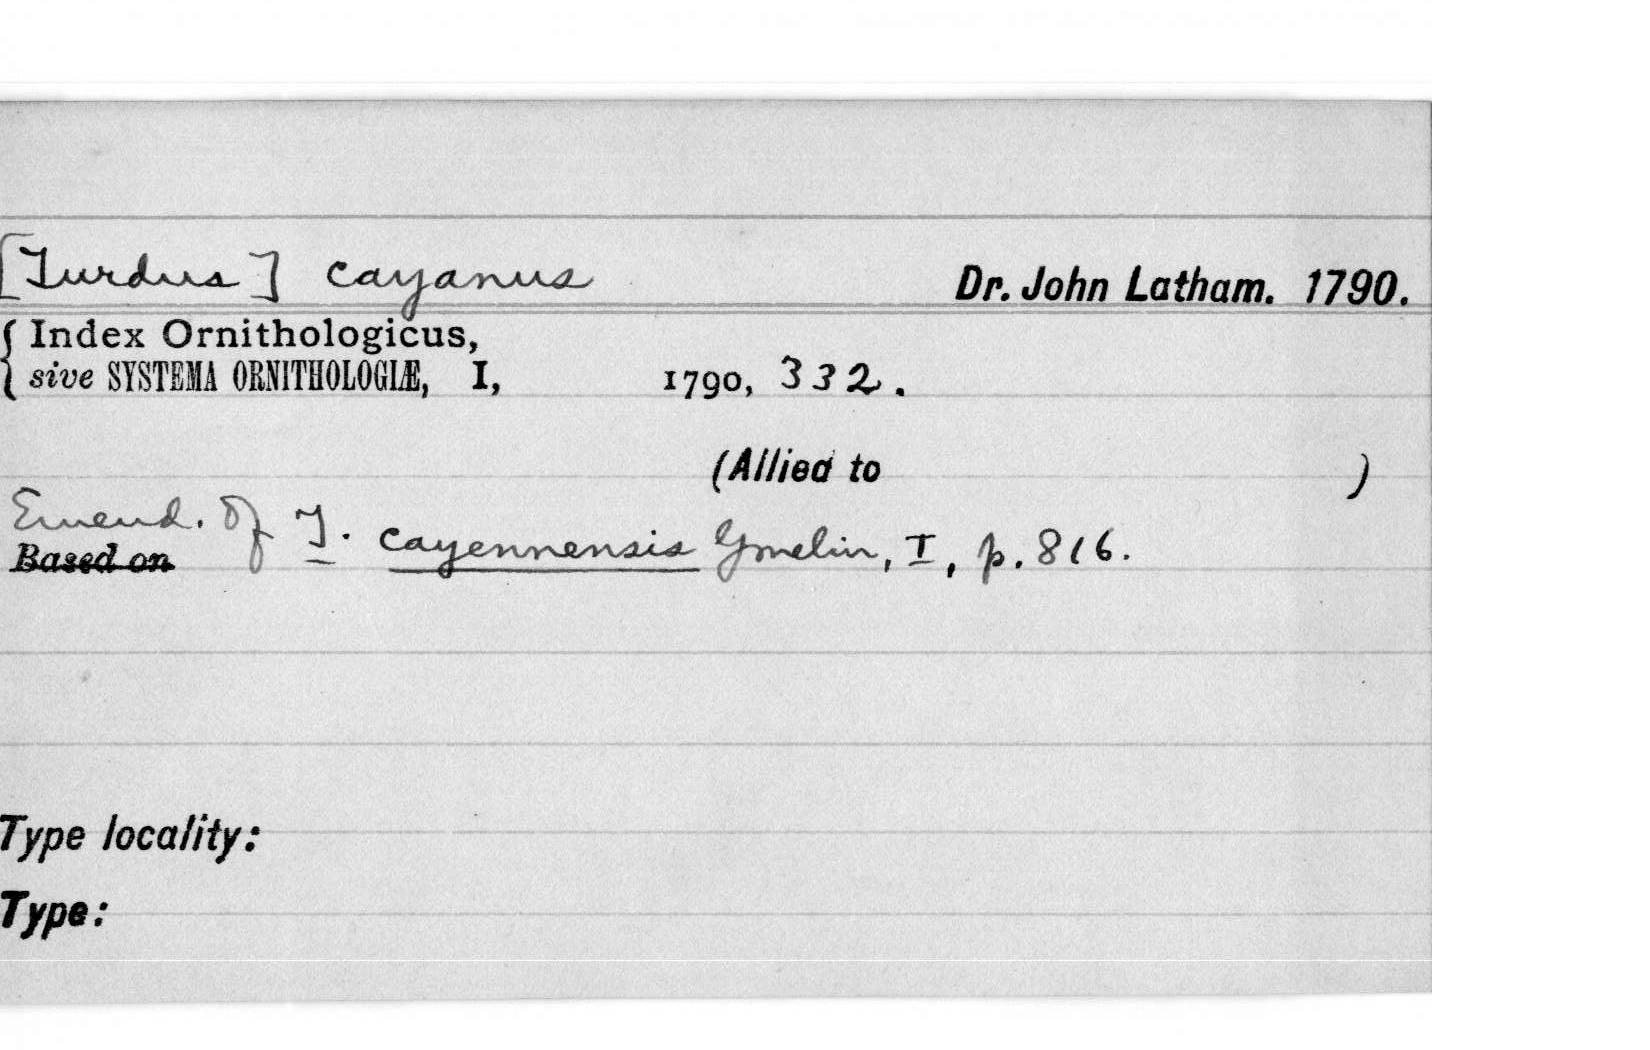 [Turdus] cayanus Dr. John Latham. 1790.
{ Index Ornithologicus,
sive SYSTEMA ORNITHOLOGIÆ, I, 1790, 332.
(Allied to )
Emend. of T. cayennensis Gmelin, I, p. 816.
Based on
Type locality:
Type: